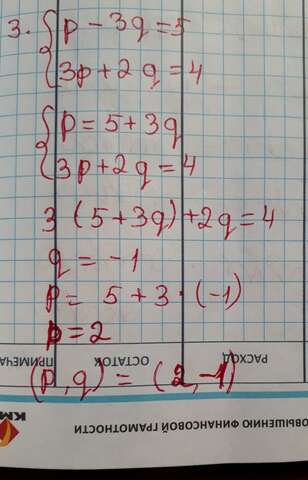 3. { p - 3q = 5
3p + 2q = 4
{ p = 5 + 3q
3p + 2q = 4
3 (5 + 3q) + 2q = 4
q = -1
p = 5 + 3 · (-1)
p = 2
(p, q) = (2, -1)
РАСХОД
ОСТАТОК
ПРИМЕЧА
ОВЫШЕНИЮ ФИНАНСОВОЙ ГРАМОТНОСТИ
КМ